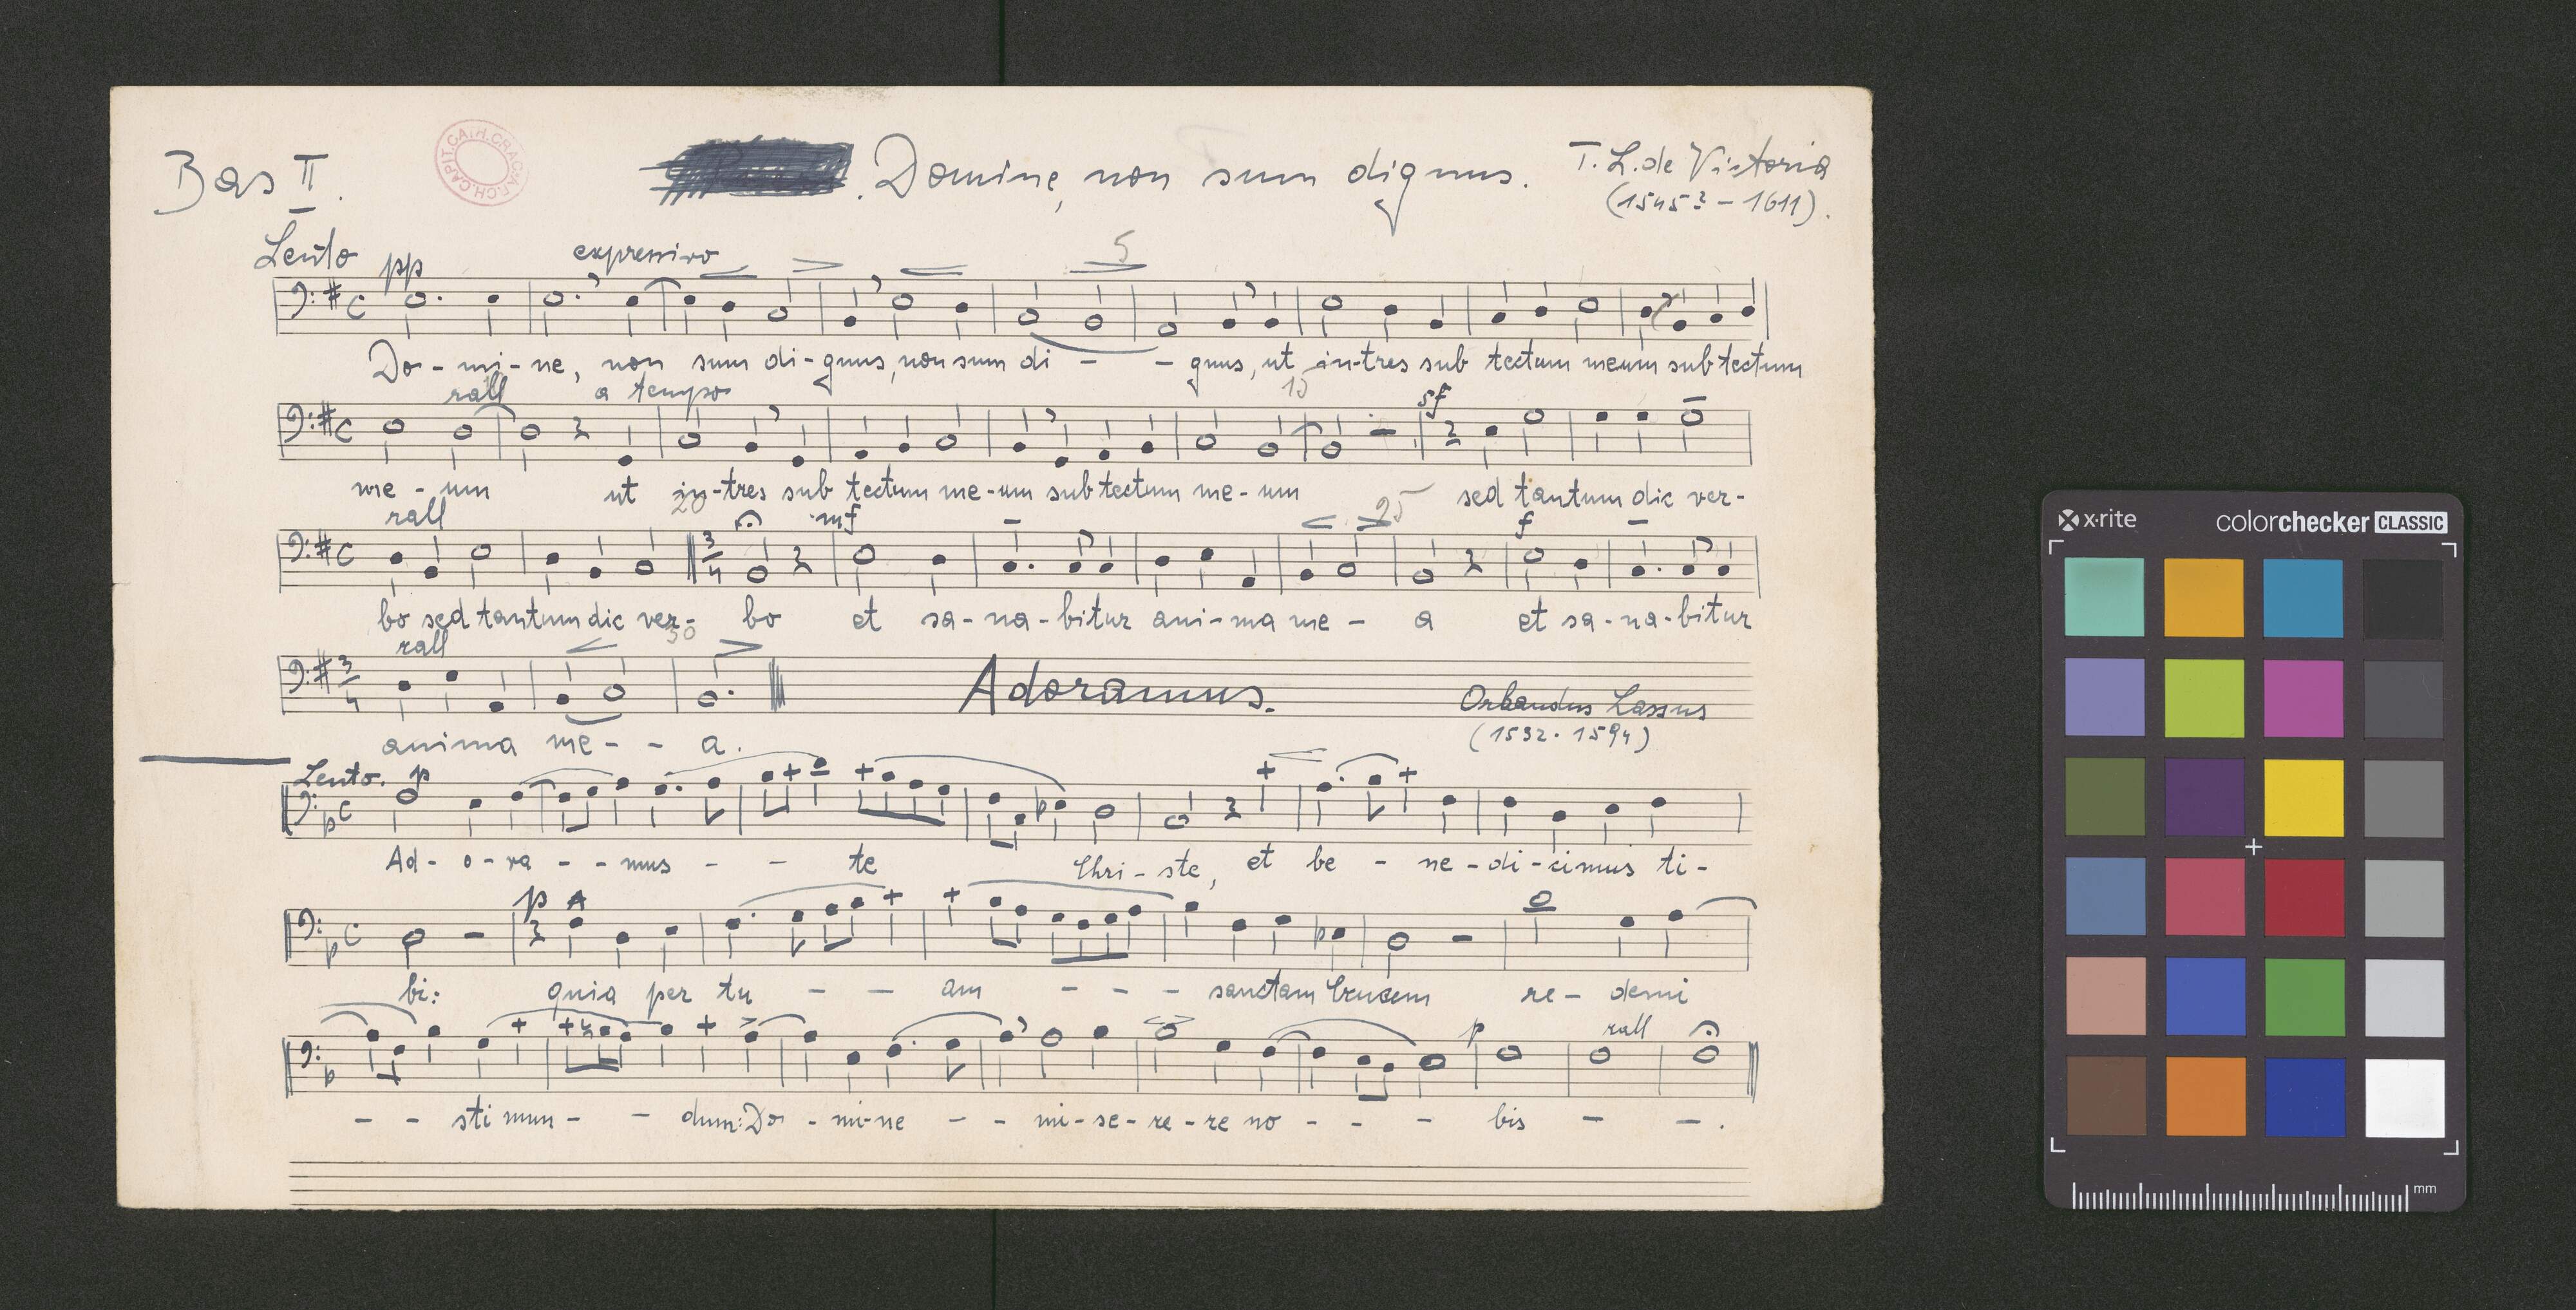 Bas II.
Domine, non sum dignus.
T. L. de Victoria
(1545? - 1611).
CAPIT.CATH.CRAC.
Lento pp expressivo 5
Do - mi - ne, non sum di - gnus, non sum di - - gnus, ut in-tres sub tectum meum sub tectum
rall a tempo 15 sf
me - um ut in-tres sub tectum me-um sub tectum me-um sed tantum dic ver-
rall 20 mf 25 f
bo sed tantum dic ver- bo et sa-na-bitur ani-ma me - a et sa-na-bitur
rall 30
Adoramus.
Orlandus Lassus
(1532. 1594)
anima me - - a.
Lento. p
Ad - o - ra - - mus - - te Chri - ste, et be - ne - di - cimus ti -
p
bi: quia per tu - - am - - - sanctam Crucem re - demi
p rall
- - sti mun - - dum: Do - mi-ne - - mi-se-re-re no - - - bis - - .
x-rite
colorchecker CLASSIC
mm